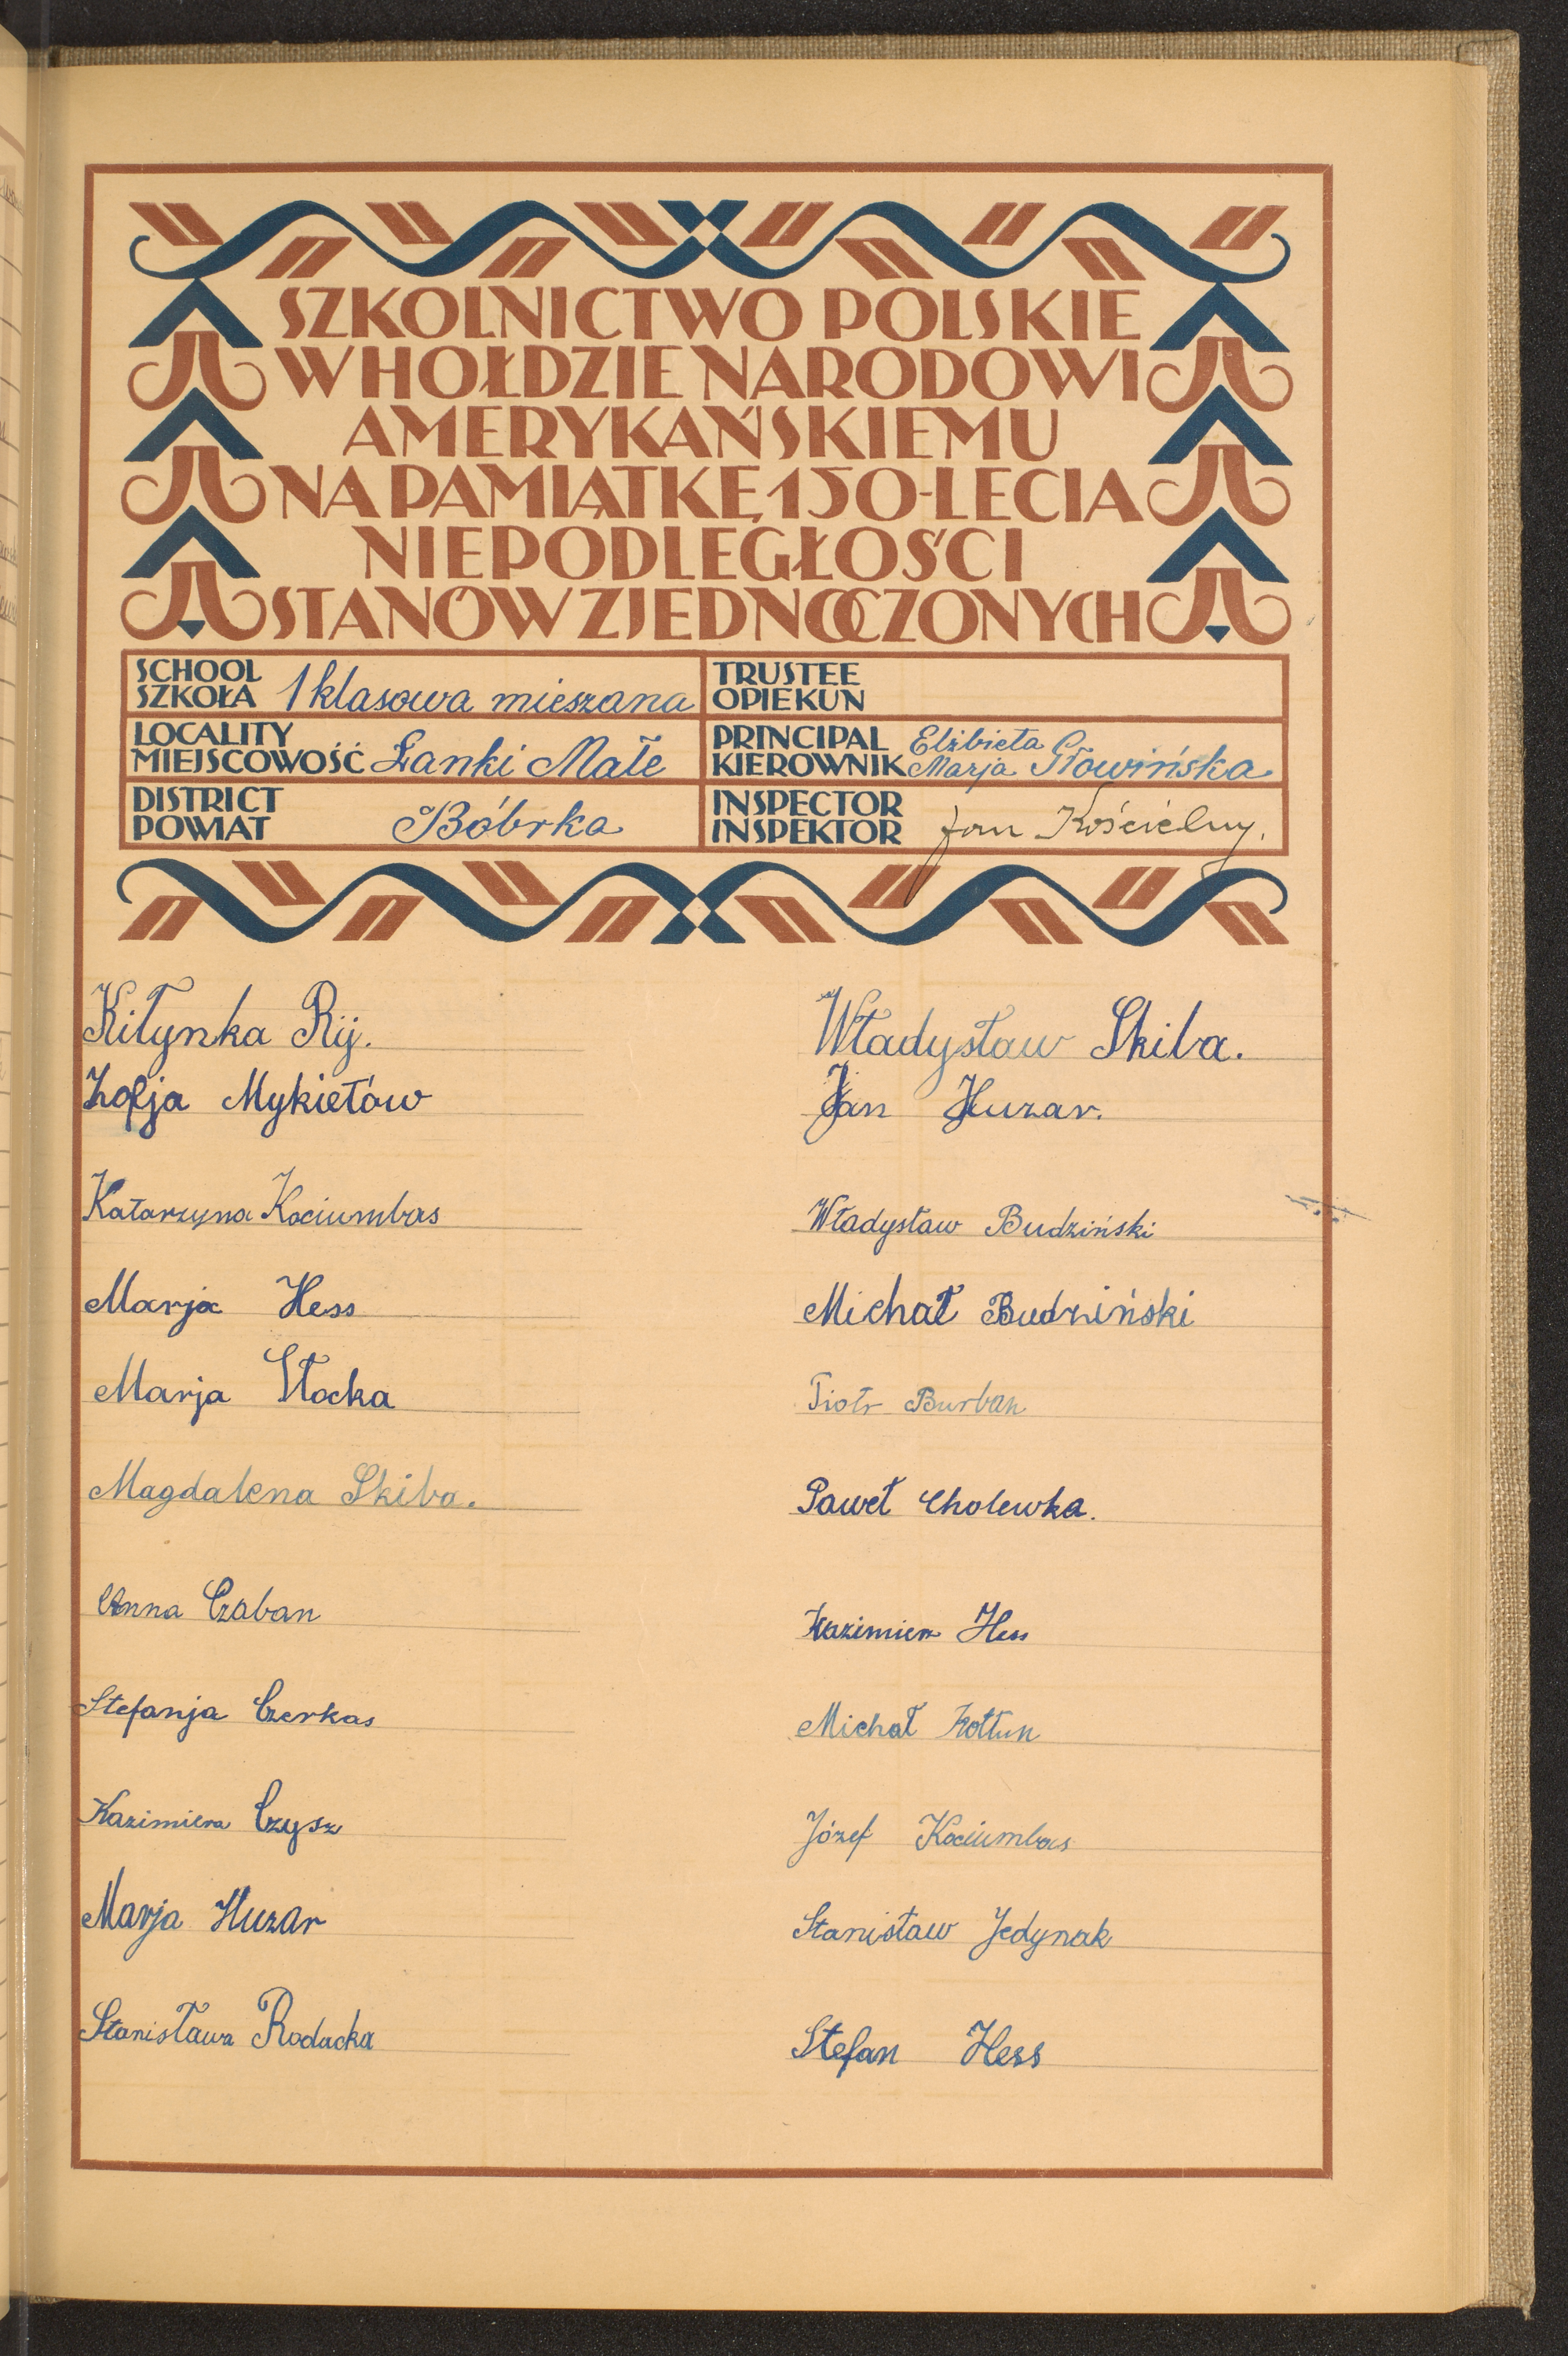 SZKOLNICTWO POLSKIE
W HOŁDZIE NARODOWI
AMERYKAŃSKIEMU
NA PAMIĄTKĘ 150-LECIA
NIEPODLEGŁOŚCI
STANÓW ZJEDNOCZONYCH
SCHOOL
SZKOŁA 1 klasowa mieszana
TRUSTEE
OPIEKUN
LOCALITY
MIEJSCOWOŚĆ Łanki Małe
PRINCIPAL Elżbieta
KIEROWNIK Marja Słowińska
DISTRICT
POWIAT Bóbrka
INSPECTOR
INSPEKTOR Jan Kościelny.
Kiłynka Rij.
Zofja Mykietów
Katarzyna Kociumbas
Marja Hess
Marja Słocka
Magdalena Skiba.
Anna Czaban
Stefanja Czerkas
Kazimiera Czysz
Marja Huzar
Stanisława Rodacka
Władysław Skiba.
Jan Huzar.
Władysław Budziński
Michał Budziński
Piotr Burban
Paweł Cholewka.
Kazimierz Hess
Michał Kołtun
Józef Kociumbas
Stanisław Jedynak
Stefan Hess